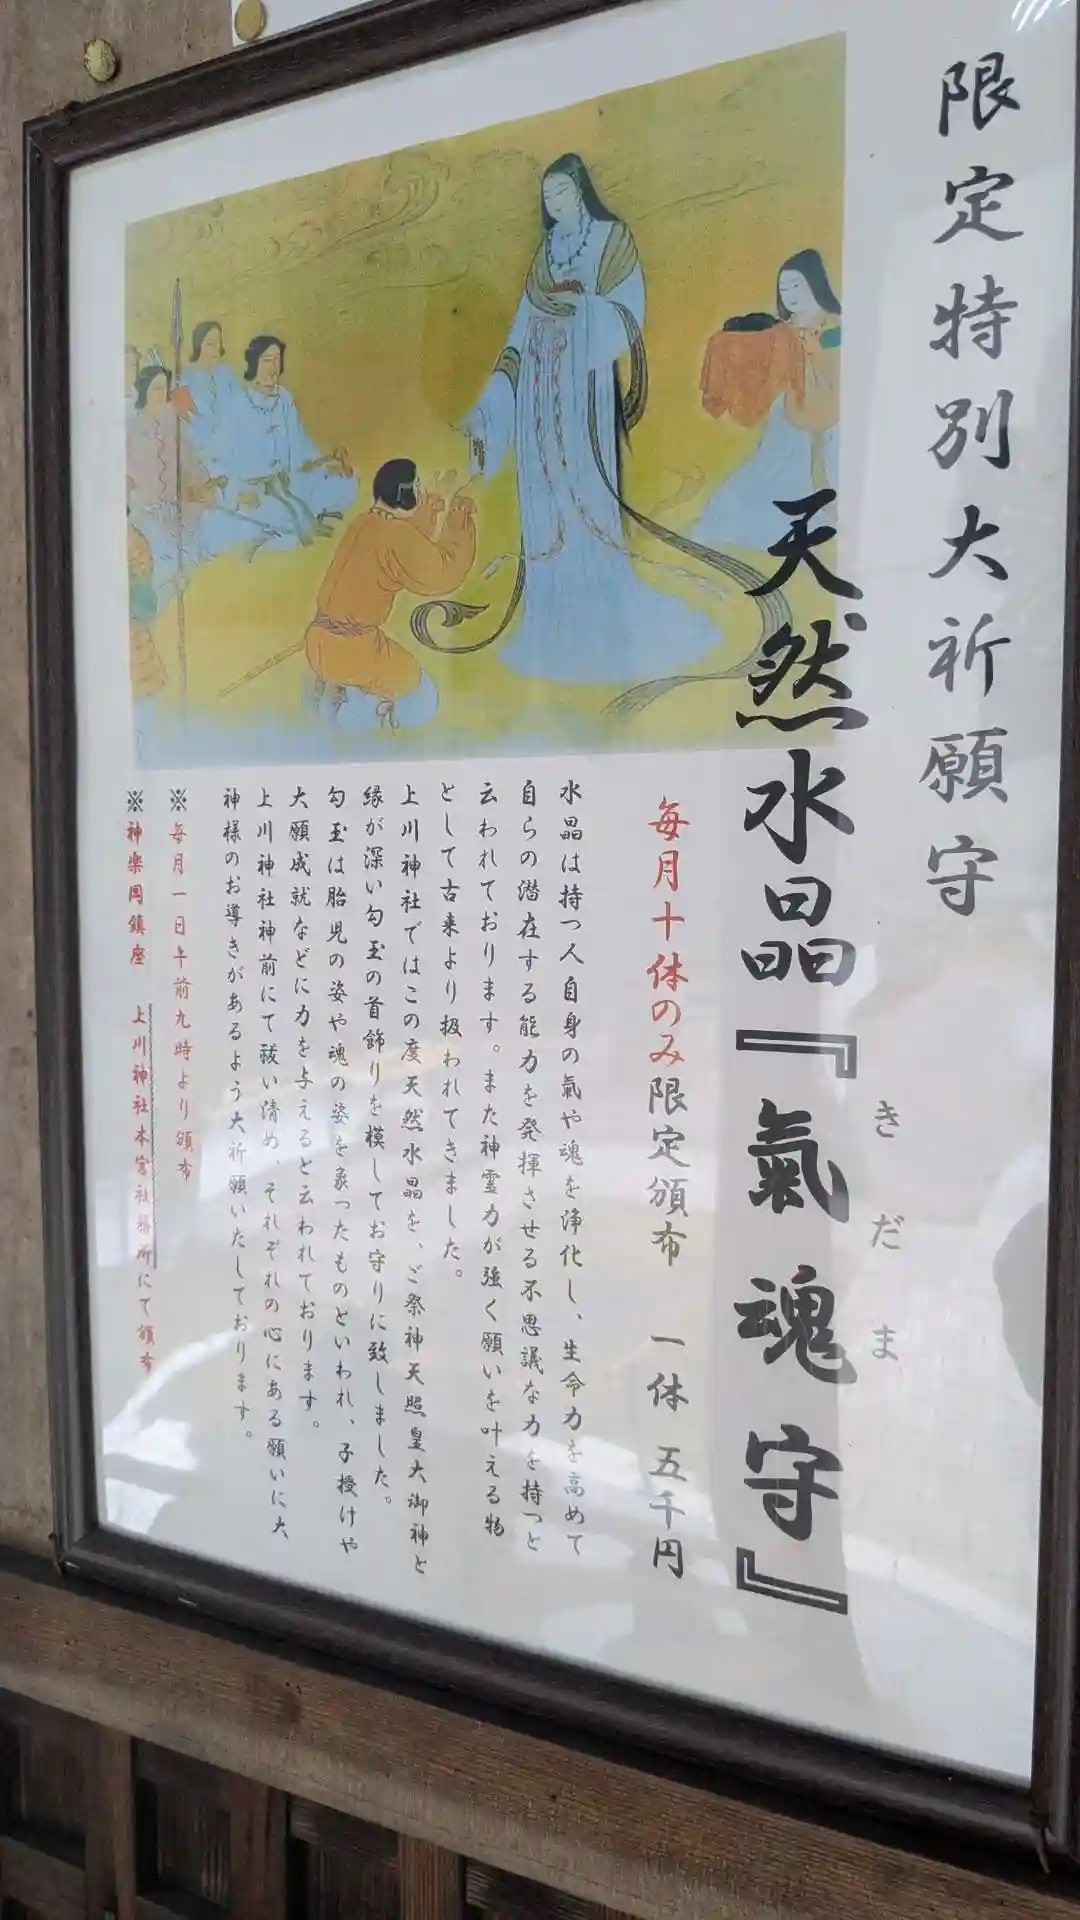 限定特別大祈願守
天然水晶『氣魂守』
きだま
毎月十体のみ限定頒布 一体 五千円
水晶は持つ人自身の氣や魂を浄化し、生命力を高めて
自らの潜在する能力を発揮させる不思議な力を持つと
云われております。また神霊力が強く願いを叶える物
として古来より扱われてきました。
上川神社ではこの度天然水晶を、ご祭神天照皇大御神と
縁が深い勾玉の首飾りを模してお守りに致しました。
勾玉は胎児の姿や魂の姿を象ったものといわれ、子授けや
大願成就などに力を与えると云われております。
上川神社神前にて祓い清め、それぞれの心にある願いに大
神様のお導きがあるよう大祈願いたしております。
※毎月一日午前九時より頒布
※神楽岡鎮座 上川神社本宮社務所にて頒布